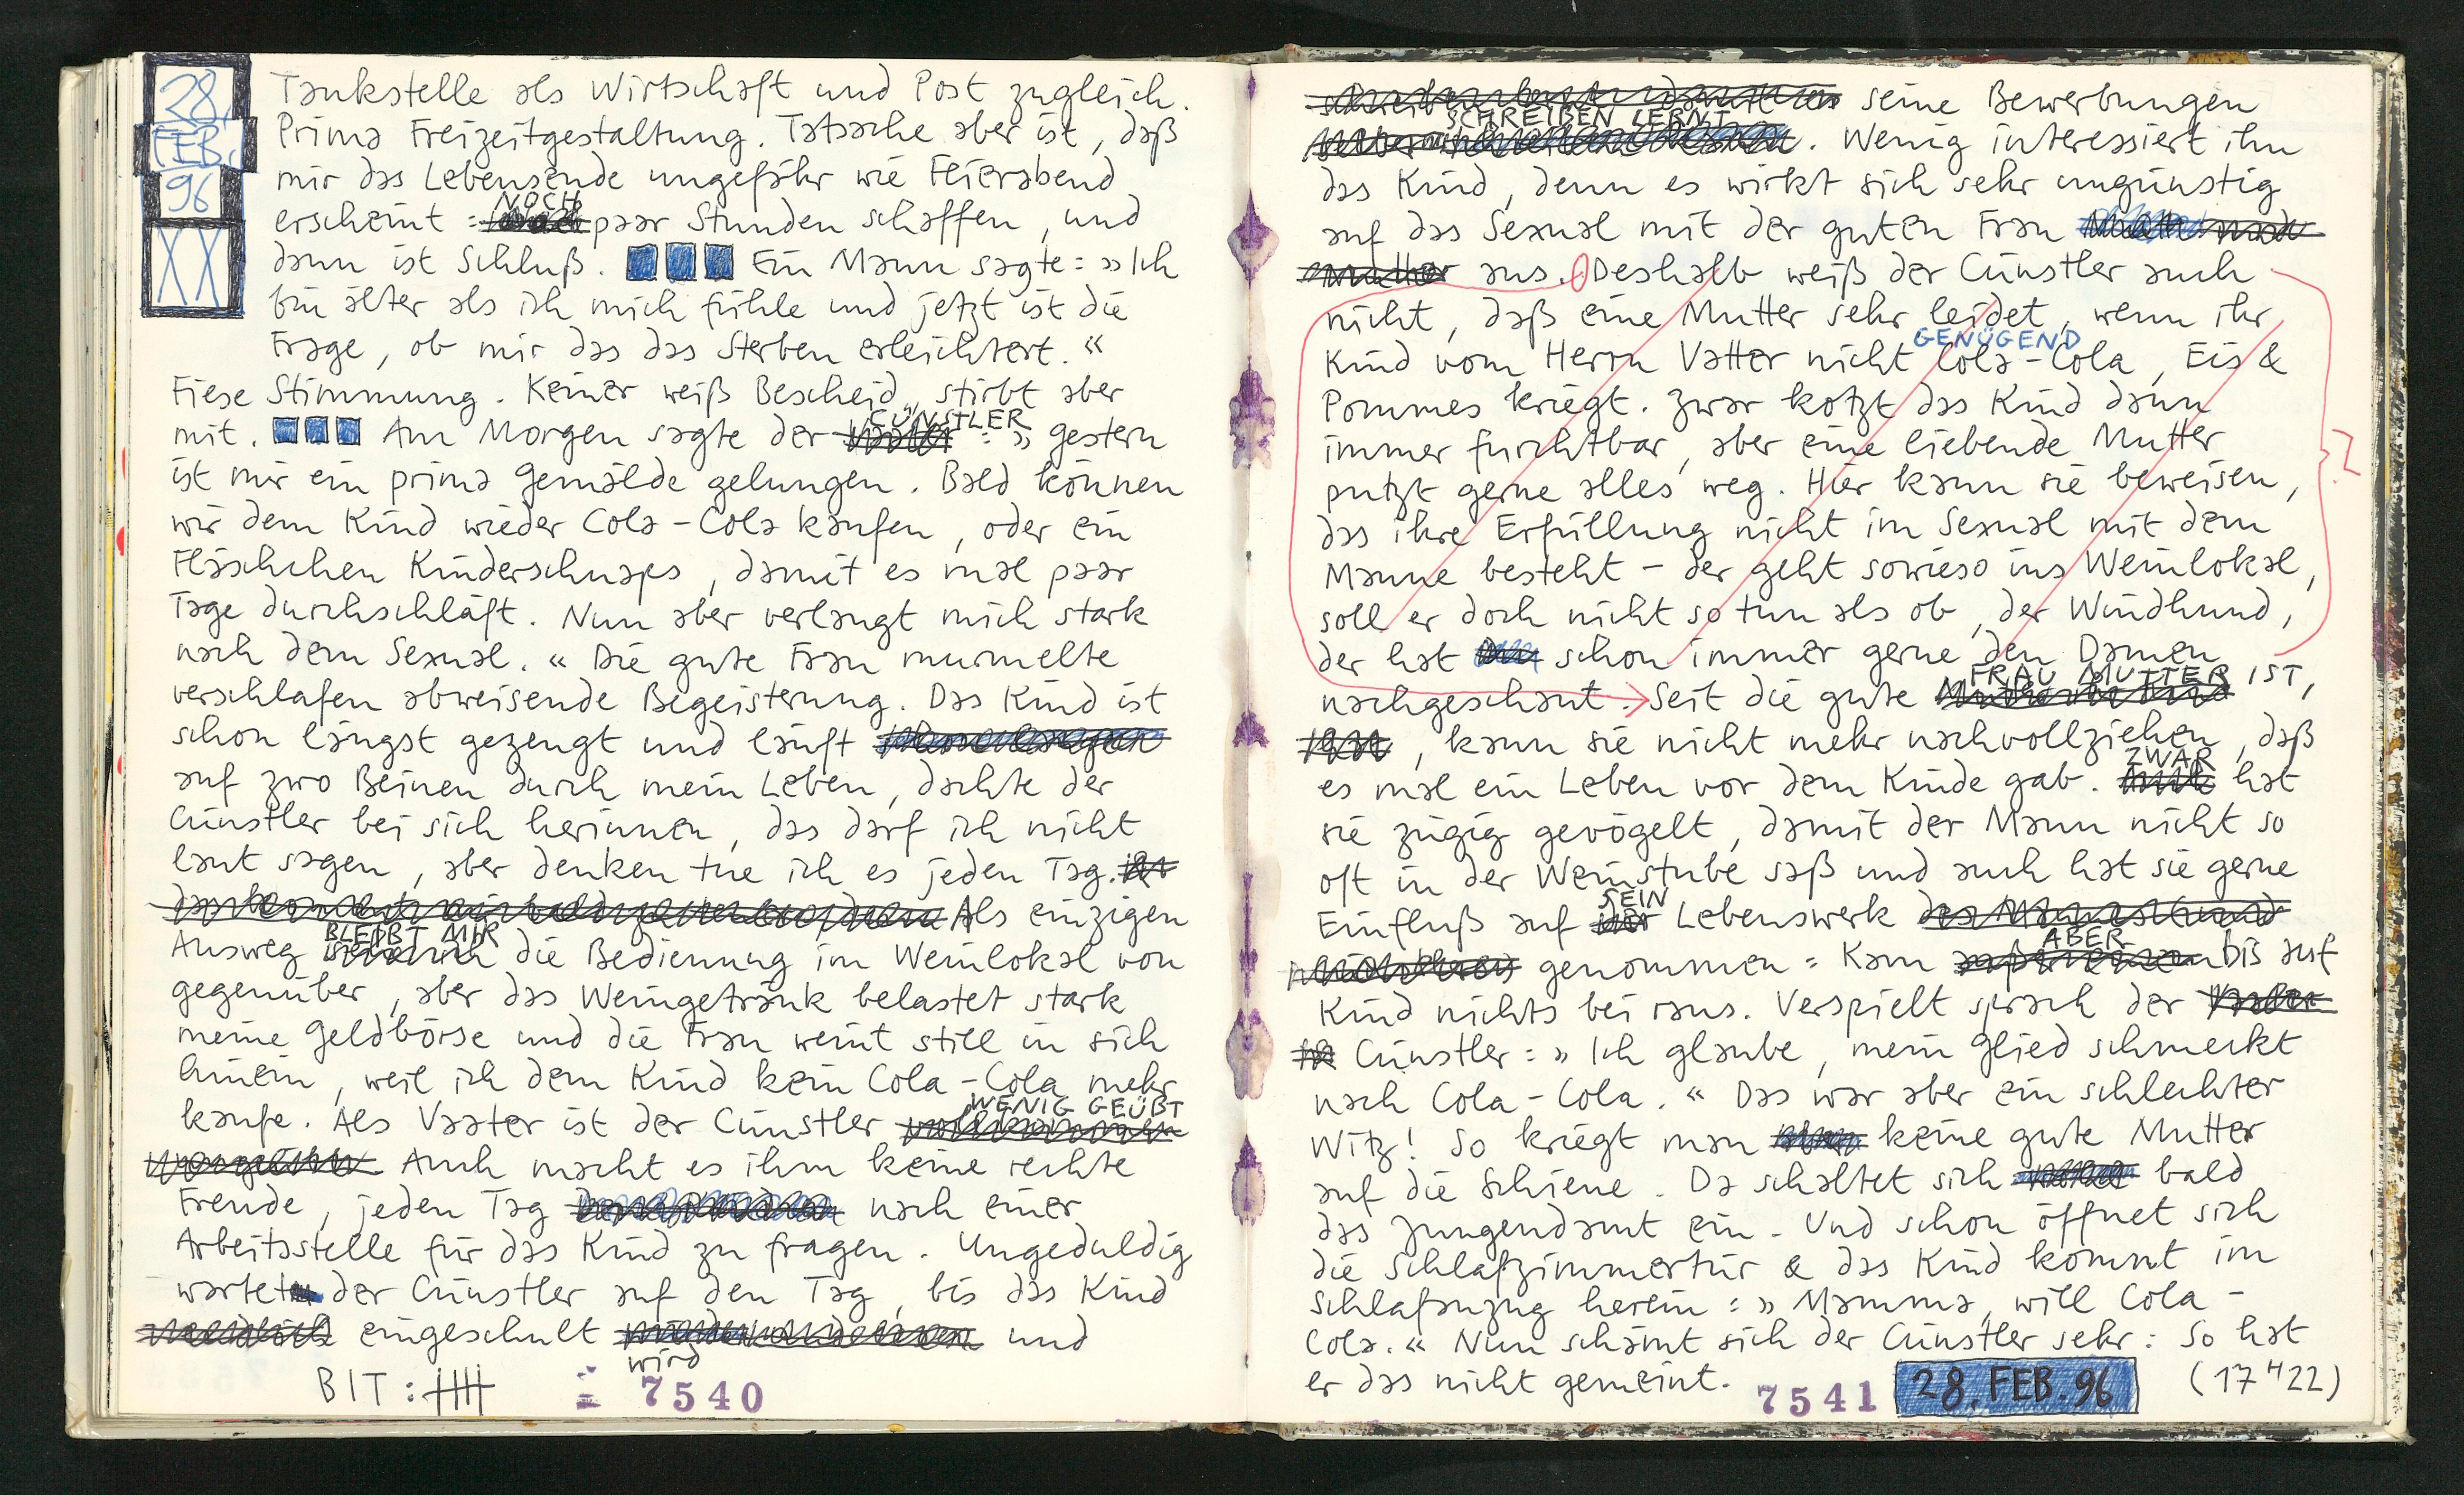 28.
FEB.
96
XX
Tankstelle als Wirtschaft und Post zugleich.
Prima Freizeitgestaltung. Tatsache aber ist, daß
mir das Lebensende ungefähr wie Feierabend
erscheint: NOCH paar Stunden schaffen, und
dann ist Schluß. Ein Mann sagte: »Ich
bin älter als ich mich fühle und jetzt ist die
Frage, ob mir das das Sterben erleichtert.«
Fiese Stimmung. Keiner weiß Bescheid, stirbt aber
mit. Am Morgen sagte der CÜNSTLER: »Gestern
ist mir ein prima Gemälde gelungen. Bald können
wir dem Kind wieder Cola-Cola kaufen, oder ein
Fläschchen Kinderschnaps, damit es mal paar
Tage durchschläft. Nun aber verlangt mich stark
nach dem Sexual.« Die gute Frau murmelte
verschlafen abweisende Begeisterung. Das Kind ist
schon längst gezeugt und läuft
auf zwo Beinen durch mein Leben, dachte der
Cünstler bei sich herinnen, das darf ich nicht
laut sagen, aber denken tue ich es jeden Tag.
Als einzigen
Ausweg BLEIBT MIR die Bedienung im Weinlokal von
gegenüber, aber das Weingetränk belastet stark
meine Geldbörse und die Frau weint still in sich
hinein, weil ich dem Kind kein Cola-Cola mehr
kaufe. Als Vaater ist der Cünstler WENIG GEÜBT
Auch macht es ihm keine rechte
Freude, jeden Tag nach einer
Arbeitsstelle für das Kind zu fragen. Ungeduldig
wartet der Cünstler auf den Tag, bis das Kind
eingeschult wird und
BIT: 卌
7540
seine Bewerbungen
SCHREIBEN LERNT. Wenig interessiert ihn
das Kind, denn es wirkt sich sehr ungünstig
auf das Sexual mit der guten Frau
aus. Deshalb weiß der Cünstler auch
nicht, daß eine Mutter sehr leidet, wenn ihr
Kind vom Herrn Vatter nicht GENÜGEND Cola-Cola, Eis &
Pommes kriegt. Zwar kotzt das Kind dann
immer furchtbar, aber eine liebende Mutter
putzt gerne alles weg. Hier kann sie beweisen,
das ihre Erfüllung nicht im Sexual mit dem
Manne besteht – der geht sowieso ins Weinlokal,
soll er doch nicht so tun als ob, der Windhund,
der hat schon immer gerne den Damen
nachgeschaut. Seit die gute FRAU MUTTER IST,
, kann sie nicht mehr nachvollziehen, daß
es mal ein Leben vor dem Kinde gab. ZWAR hat
sie zügig gevögelt, damit der Mann nicht so
oft in der Weinstube saß und auch hat sie gerne
Einfluß auf SEIN Lebenswerk
genommen: Kam ABER bis auf
Kind nichts bei raus. Verspielt sprach der
Cünstler: »Ich glaube, mein Glied schmeckt
nach Cola-Cola.« Das war aber ein schlechter
Witz! So kriegt man keine gute Mutter
auf die Schiene. Da schaltet sich bald
das Jungendamt ein. Und schon öffnet sich
die Schlafzimmertür & das Kind kommt im
Schlafanzug herein: »Mamma, will Cola-
Cola.« Nun schämt sich der Cünstler sehr: So hat
er das nicht gemeint.
?
7541
28. FEB. 96
(17"22)